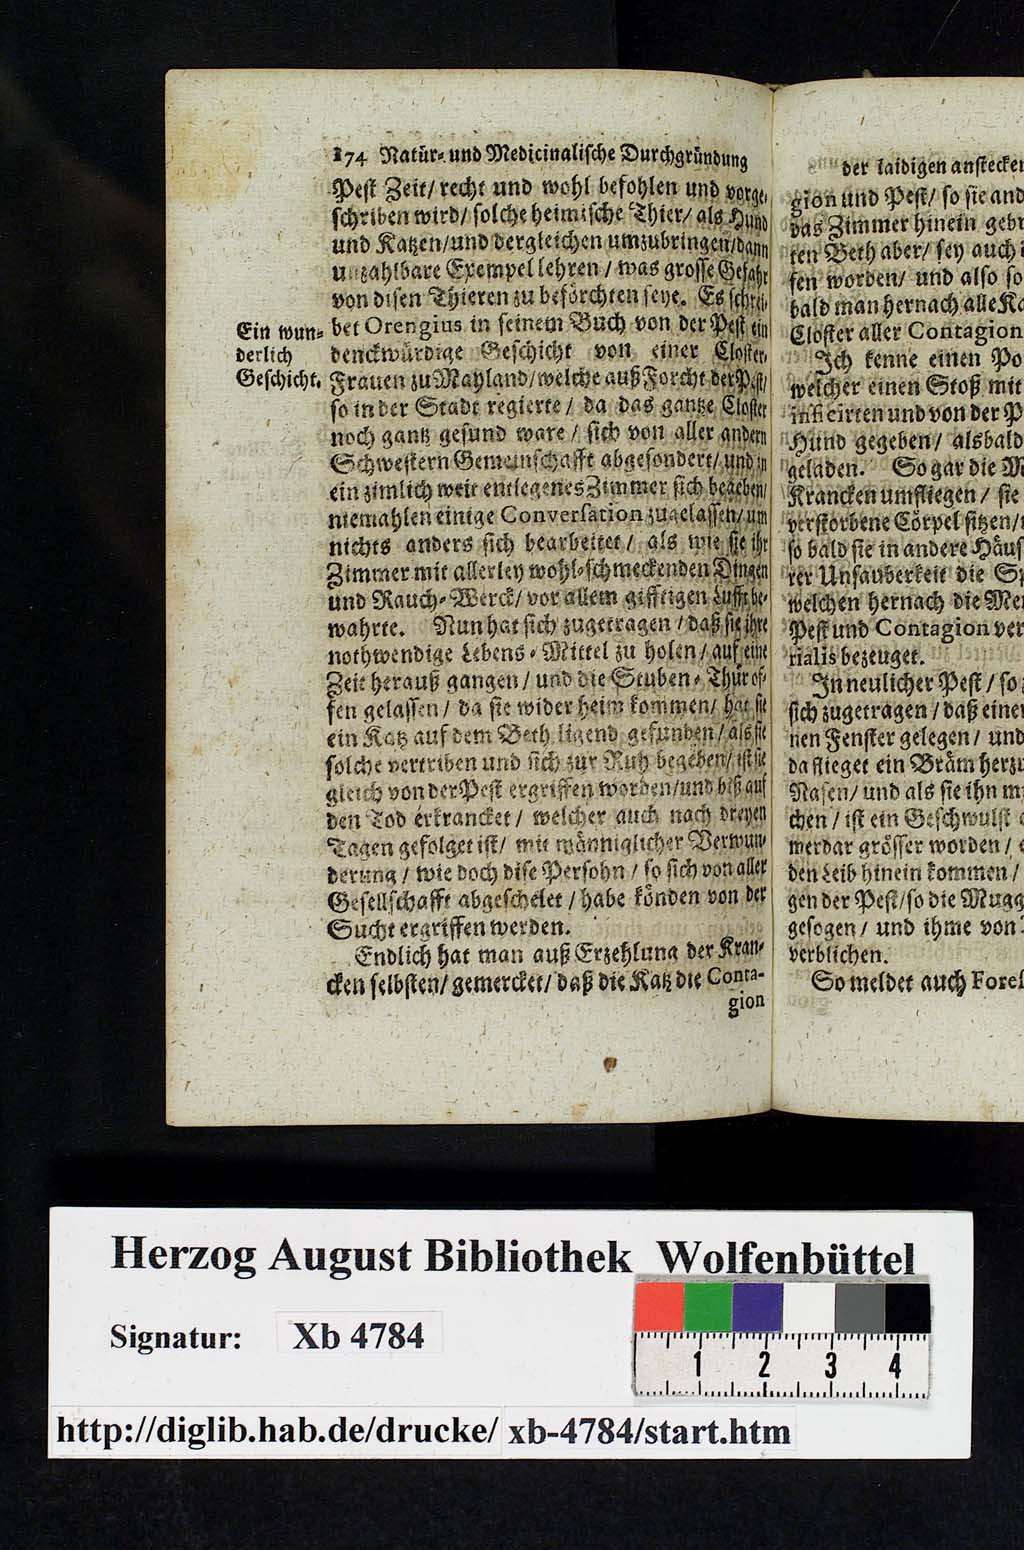 174 Natür- und Medicinalische Durchgründung
Pest Zeit/ recht und wohl befohlen und vorge-
schriben wird/ solche heimische Thier/ als Hund
und Katzen/ und dergleichen umzubringen/ dann
unzahlbare Exempel lehren / was grosse Gefahr
von disen Thieren zu beförchten seye. Es schrei-
bet Orengius in seinem Buch von der Pest ein
denckwürdige Geschicht von einer Closter-
Frauen zu Mayland/ welche auß Forcht der Pest/
so in der Stadt regierte / da das gantze Closter
noch gantz gesund ware / sich von aller andern
Schwestern Gemeinschafft abgesondert/ und in
ein zimlich weit entlegenes Zimmer sich begeben/
niemahlen einige Conversation zugelassen/ um
nichts anders sich bearbeitet / als wie sie ihr
Zimmer mit allerley wohl-schmeckenden Dingen
und Rauch-Werck/ vor allem gifftigen Lufft be-
wahrte. Nun hat sich zugetragen / daß sie ihre
nothwendige Lebens-Mittel zu holen / auf eine
Zeit herauß gangen / und die Stuben-Thür of-
fen gelassen / da sie wider heim kommen/ hat sie
ein Katz auf dem Beth ligend gefunden / als sie
solche vertriben und sich zur Ruh begeben/ ist sie
gleich von der Pest ergriffen worden/ und biß auf
den Tod erkrancket / welcher auch nach dreyen
Tagen gefolget ist/ mit männiglicher Verwun-
derung / wie doch dise Persohn / so sich von aller
Gesellschafft abgeschelet / habe könden von der
Sucht ergriffen werden.
Endlich hat man auß Erzehlung der Kran-
cken selbsten/ gemercket/ daß die Katz die Conta-
gion
Ein wun-
derlich
Geschicht.
der laidigen anstecken
gion und Pest/ so sie and
das Zimmer hinein gebr
ten Beth aber/ sey auch
fen worden/ und also so
bald man hernach alle Ka
Closter aller Contagion
Ich kenne einen Po
welcher einen Stoß mit
inficirten und von der P
Hund gegeben/ alsbald
geladen. So gar die M
Krancken umfliegen / sie
verstorbene Cörpel sitzen/
so bald sie in andere Häus
rer Unsauberkeit die Sp
welchen hernach die Men
Pest und Contagion ver
rialis bezeuget.
In neulicher Pest / so
sich zugetragen / daß einer
nen Fenster gelegen / und
da flieget ein Bräm herzu
Nasen/ und als sie ihn mi
chen / ist ein Geschwulst
merdar grösser worden /
den Leib hinein kommen /
gen der Pest/ so die Mugg
gesogen / und ihme von
verblichen.
So meldet auch Fores
Herzog August Bibliothek Wolfenbüttel
Signatur: Xb 4784
1 2 3 4
http://diglib.hab.de/drucke/ xb-4784/start.htm